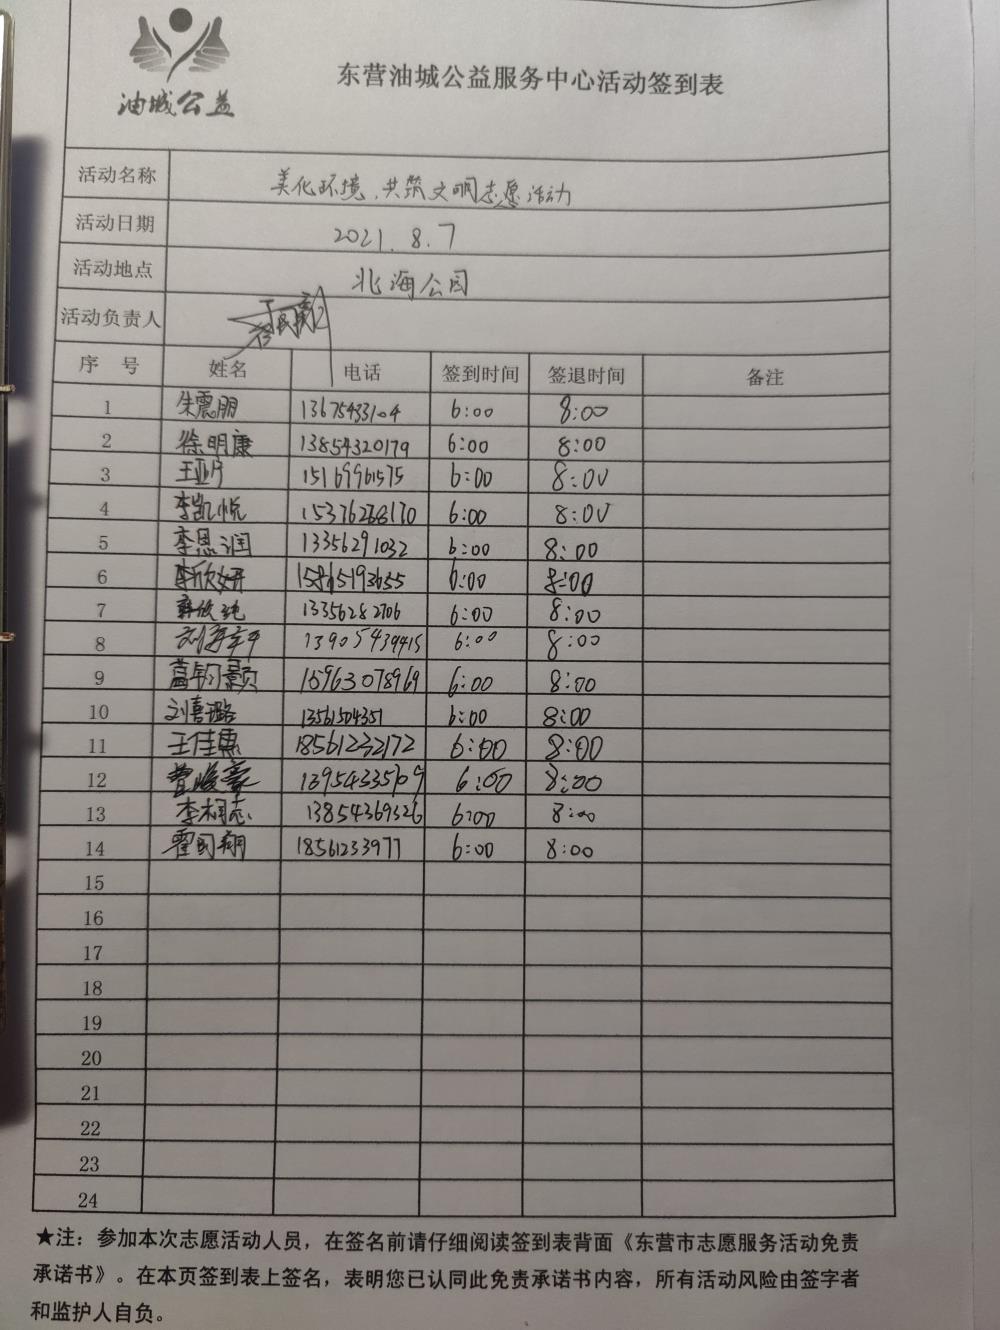 油城公益
东营油城公益服务中心活动签到表
活动名称 美化环境、共筑文明志愿活动
活动日期 2021.8.7
活动地点 北海公园
活动负责人
序号 姓名 电话 签到时间 签退时间 备注
1 朱震朋 13675433104 6:00 8:00
2 徐明康 13854320179 6:00 8:00
3 15169961575 6:00 8:00
4 李凯悦 15376268170 6:00 8:00
5 李恩润 13356291032 6:00 8:00
6 李欣妍 15865193655 6:00 8:00
7 13356282706 6:00 8:00
8 13905439415 6:00 8:00
9 葛钧颢 15963078969 6:00 8:00
10 刘喜璐 13561504351 6:00 8:00
11 王佳惠 18561232172 6:00 8:00
12 13954335709 6:00 8:00
13 李相志 13854369326 6:00 8:00
14 霍钧翔 18561233977 6:00 8:00
15
16
17
18
19
20
21
22
23
24
★注：参加本次志愿活动人员，在签名前请仔细阅读签到表背面《东营市志愿服务活动免责
承诺书》。在本页签到表上签名，表明您已认同此免责承诺书内容，所有活动风险由签字者
和监护人自负。